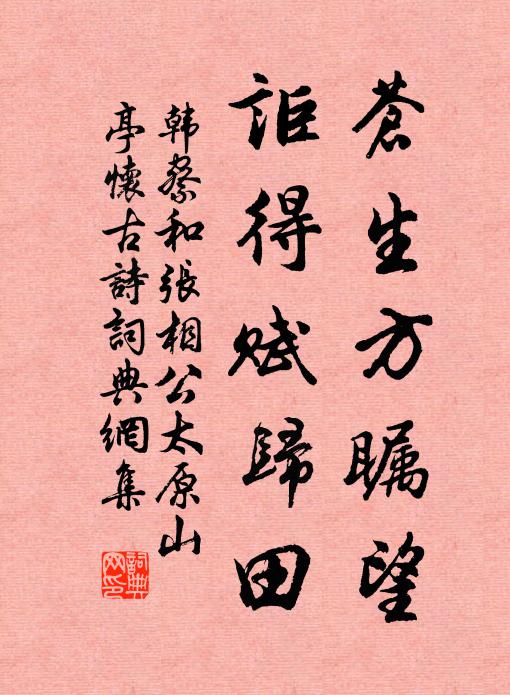 蒼生方瞩望
詎得赋歸田
韩察和張相公太原山
亭懷古詩詞典網集
詞典網印